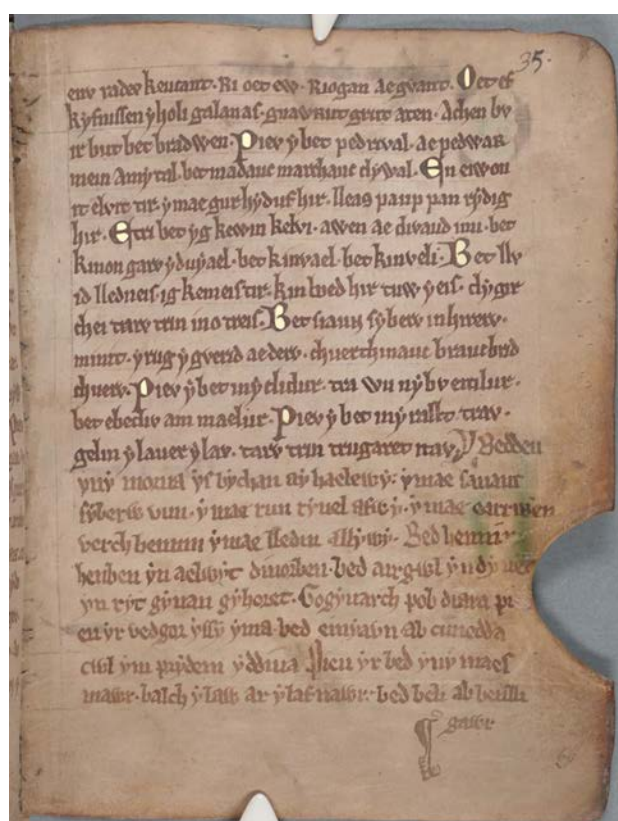 35.
env rader keucant. Ri oet ew. Riogan ae gvant. Oet ef
kyfnissen y holi galanas. guawrut grut aten. A chen bv
ir but bet bradwen. Piev y bet pedrival. ae pedwar
mein amy tal. bet madauc marchauc dywal. En eiwon
it elvit tir. y mae gur hyduf hir. lleas paup pan rydig
hir. E tri bet yg kewin kelvi. awen ae divaud imi. bet
kinon garv y duyael. bet kinvael. bet kinveli. Bet llv
id lledneis. ig kemeis tir. kin boed hir tuw y eis. dygir
chei tarv trin ino treis. Bet siaun syberw in hirerw.
minit. yrug y gverid ae derw. chuerthinauc braucbrid
chuerv. Piev y bet in y clidur. tra wu ny bv eitilur.
bet ebediw am maelur. Piev y bet in yr allt trav.
gelin y lauer y lav. tarv trin trugaret itav. Y Beddeu
yny morua ys bychan ay haelewy. y mae sanant
syberw vun. y mae run ryuel afwy. y mae earrwen
verch hennin y mae lledin a llywy. Bed hennin
henben yn aelwyt dinorben. bed airgwl yn dyuet
yn ryt gynan gyhoret. Gogyuarch pob diara pi
eu yr vedgor yssy yma. bed einyawn ab cunedda
cwl ym prydein y ddiua Pieu yr bed yny maes
mawr. balch y law ar y lafnawr. bed beli ab benlli
gawr